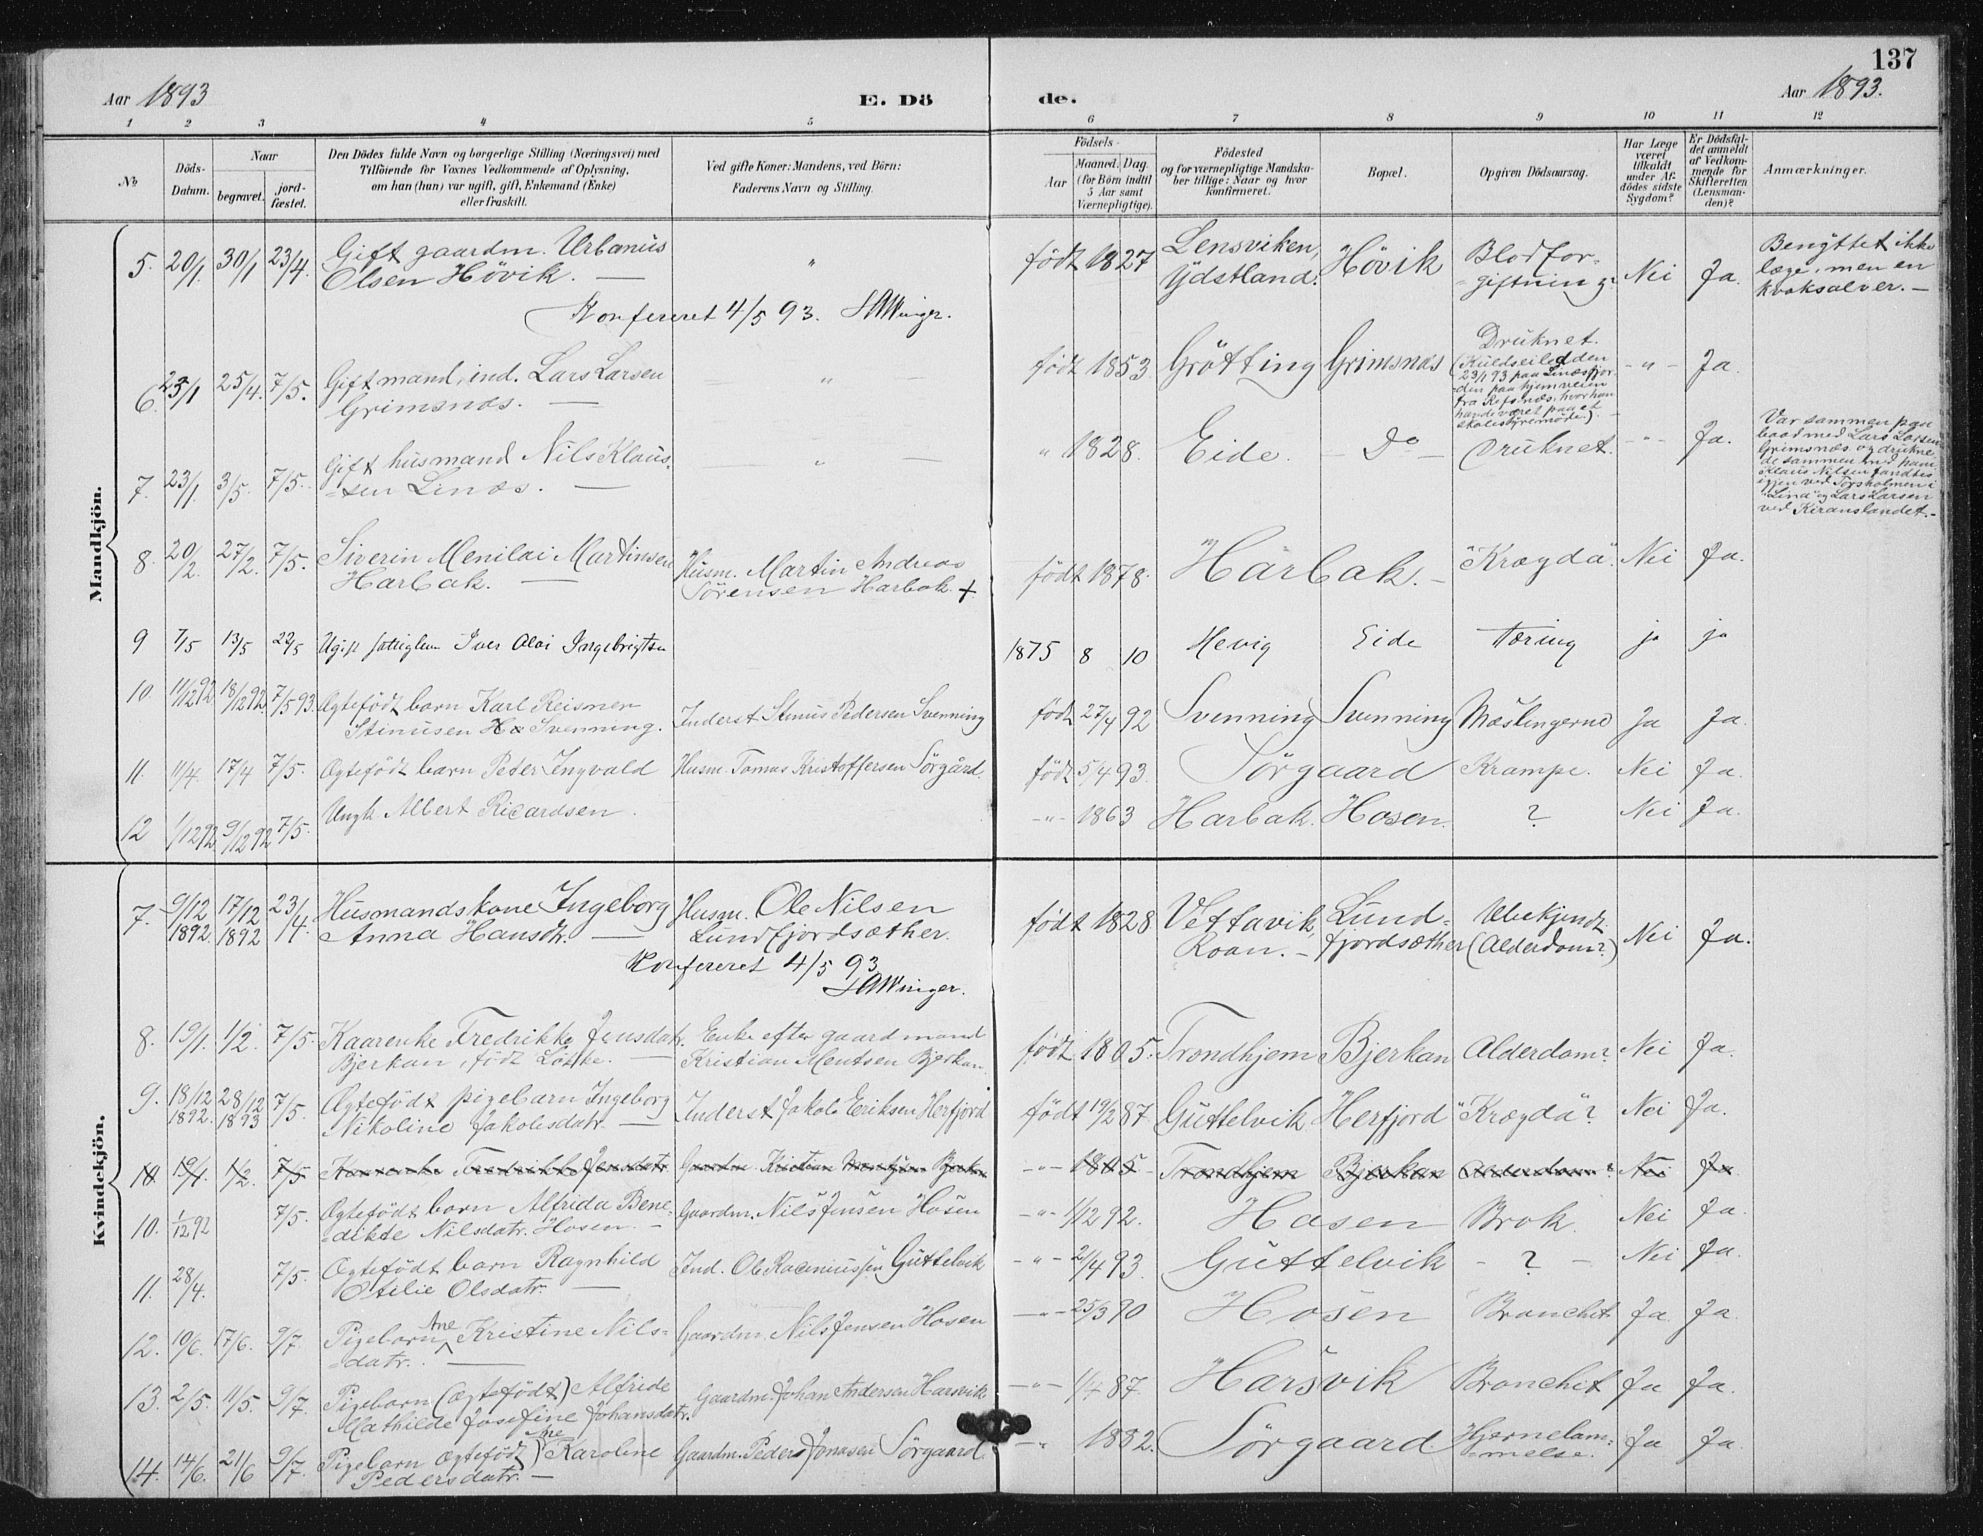 137
Aar 1893
E. Dö
de.
Aar 1893.
1 2 3 4 5 6 7 8 9 10 11 12
No
Döds-
Datum.
Naar
begravet.
jord-
fæstet.
Den Dödes fulde Navn og borgerlige Stilling (Næringsvei) med
Tilföiende for Voxnes Vedkommende af Oplysning,
om han (hun) var ugift, gift, Enkemand (Enke)
eller fraskilt.
Ved gifte Koner: Mandens, ved Börn:
Faderens Navn og Stilling.
Födsels-
Aar
Maaned. Dag.
(for Börn indtil
5 Aar samt
Værnepligtige).
Födested
og for værnepligtige Mandska-
ber tillige: Naar og hvor
konfirmeret.
Bopæl.
Opgiven Dödsaarsag.
Har Læge
været
tilkaldt
under Af-
dödes sidste
Sygdom?
Er Dödsfal-
det anmeldt
af Vedkom-
mende for
Skifteretten
(Lensman-
den)?
Anmærkninger.
Mandkjön.
5. 20/1. 30/1 23/4. Gift gaardm. Urbanus
Olsen Hövik. —
" født 1827 Lensviken,
Ydstland. Hövik Blodfor-
giftning. Nei Ja. Benyttet ikke
læge, men en
kvaksalver. —
Konfereret 4/5 93. SAWinger.
6. 23/1 25/4. 7/5. Gift mand, ind. Lars Larsen
Grimsnæs. —
— " — født 1853. Grötting Grimsnæs Druknet.
(Kuldseilet den
23/1 93 paa Linæsfjor-
den paa hjemveien
fra Refsnæs, hvor han
havde været paa et
skolestyremöde). - " - Ja.
7. 23/1. 3/5. 7/5. Gift husmand Nils Klaus-
sen Linæs. —
— " — " 1828. Eide. — Do — Druknet. - " - Ja. Var sammen paa
baad med Lars Larsen
Grimsnæs og drukne-
de sammen med ham.
Klaus Nilsen fandtes
igjen ved Torsholmen i
"Lina" og Lars Larsen
ved Kiranlandet. -
8. 20/2. 27/2. 7/5. Siverin Menilai Martinsen
Harbak. —
Husm. Martin Andreas
Sörensen Harbak. +
født 1878. Harbak. - "Krægda". Nei Ja.
9 7/5 13/5 22/5 Ugift Iver Olai Ingebrigtsen
1875 8 10 Hevig Eide Tæring ja ja
10. 11/12 92 18/12 92. 7/5 93. Ægtefödt barn Karl Reismer
Stinusen Svenning.
Inderst Stinus Pedersen Svenning
født 27/4 92 Svenning Svenning Mæslingerne Ja Ja.
11. 11/4. 17/4 7/5. Ægtefödt barn Peter Ingvald
Husm. Tomas Kristoffersen Sörgård.
født 5/4 93. Sörgaard Krampe. Nei Ja.
12 1/12 92. 9/12 92 7/5. Ungk. Albert Ricardsen.
- " - 1863 Harbak. Hosen. ? Nei Ja.
Kvindekjön.
7. 9/12 1892. 17/12 1892 23/4. Husmandskone Ingeborg
Anna Hansdtr. —
Husm. Ole Nilsen
Lundfjordsæther.
født 1828 Vettavik,
Roan. - Lund-
fjordsæther Ubekjendt.
(Alderdom?) Nei Ja.
Konfereret 4/5 93
SAWinger.
8. 19/1. 1/2. 7/5. Kaarenke Fredrikke Jensdatr.
Bjerkan, födt Lökke. —
Enke efter gaardmand
Kristian Mentsen Bjerkan.
født 1805. Trondhjem Bjerkan Alderdom? Nei Ja.
9. 18/12 1892. 28/12 1893 7/5. Ægtefödt pigebarn Ingeborg
Nikoline Jakobsdatr. —
Inderst Jakob Eriksen Herfjord
født 19/2 87 Guttelvik Herfjord "Krægda"? Nei Ja.
10. 19/1. 1/2. 7/5 Kaarenke Fredrikke Jensdatr. Gaardm. Kristian Bjerkan
- " - 1805 Trondhjem Bjerkan Alderdom? Nei Ja
10. 1/12 92 7/5. Ægtefödt barn Alfrida Bene-
dikte Nilsdatr. Hosen. -
Gaardm. Nils Jensen Hosen
- " - 1/12 92. Hosen Brok. Nei Ja.
11. 28/4. 7/5. Ægtefödt barn Ragnhild
Otilie Olsdatr. —
Ind. Ole Guttelvik
- " - 2/4 93. Guttelvik - ? - Nei Ja.
12. 10/6. 17/6. 9/7. Pigebarn Ane Kristine Nils-
datr. —
Gaardm. Nils Jensen Hosen
- " - 25/3 90 Hosen Bronchit Ja Ja.
13. 2/5. 11/5. 9/7. Pigebarn (ægtefödt) Alfride
Mathilde Josefine Johansdatr.
Gaardm. Johan Andersen Harsvik
- " - 1/4 87. Harsvik Bronchit Ja Ja.
14. 14/6. 21/6 9/7. Pigebarn (ægtefödt) Ane Karoline
Pedersdatr. —
Gaardm. Peder Jonasen Sörgaard.
- " 1882. Sörgaard. Hjernelam-
melse. Ja Ja.